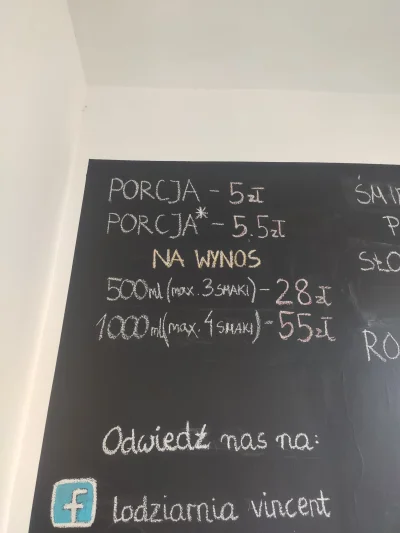 PORCJA - 5zł
PORCJA* - 5.5zł
NA WYNOS
500ml (max. 3 SMAKI) - 28zł
1000ml (max. 4 SMAKI) - 55zł
Odwiedź nas na:
f lodziarnia vincent